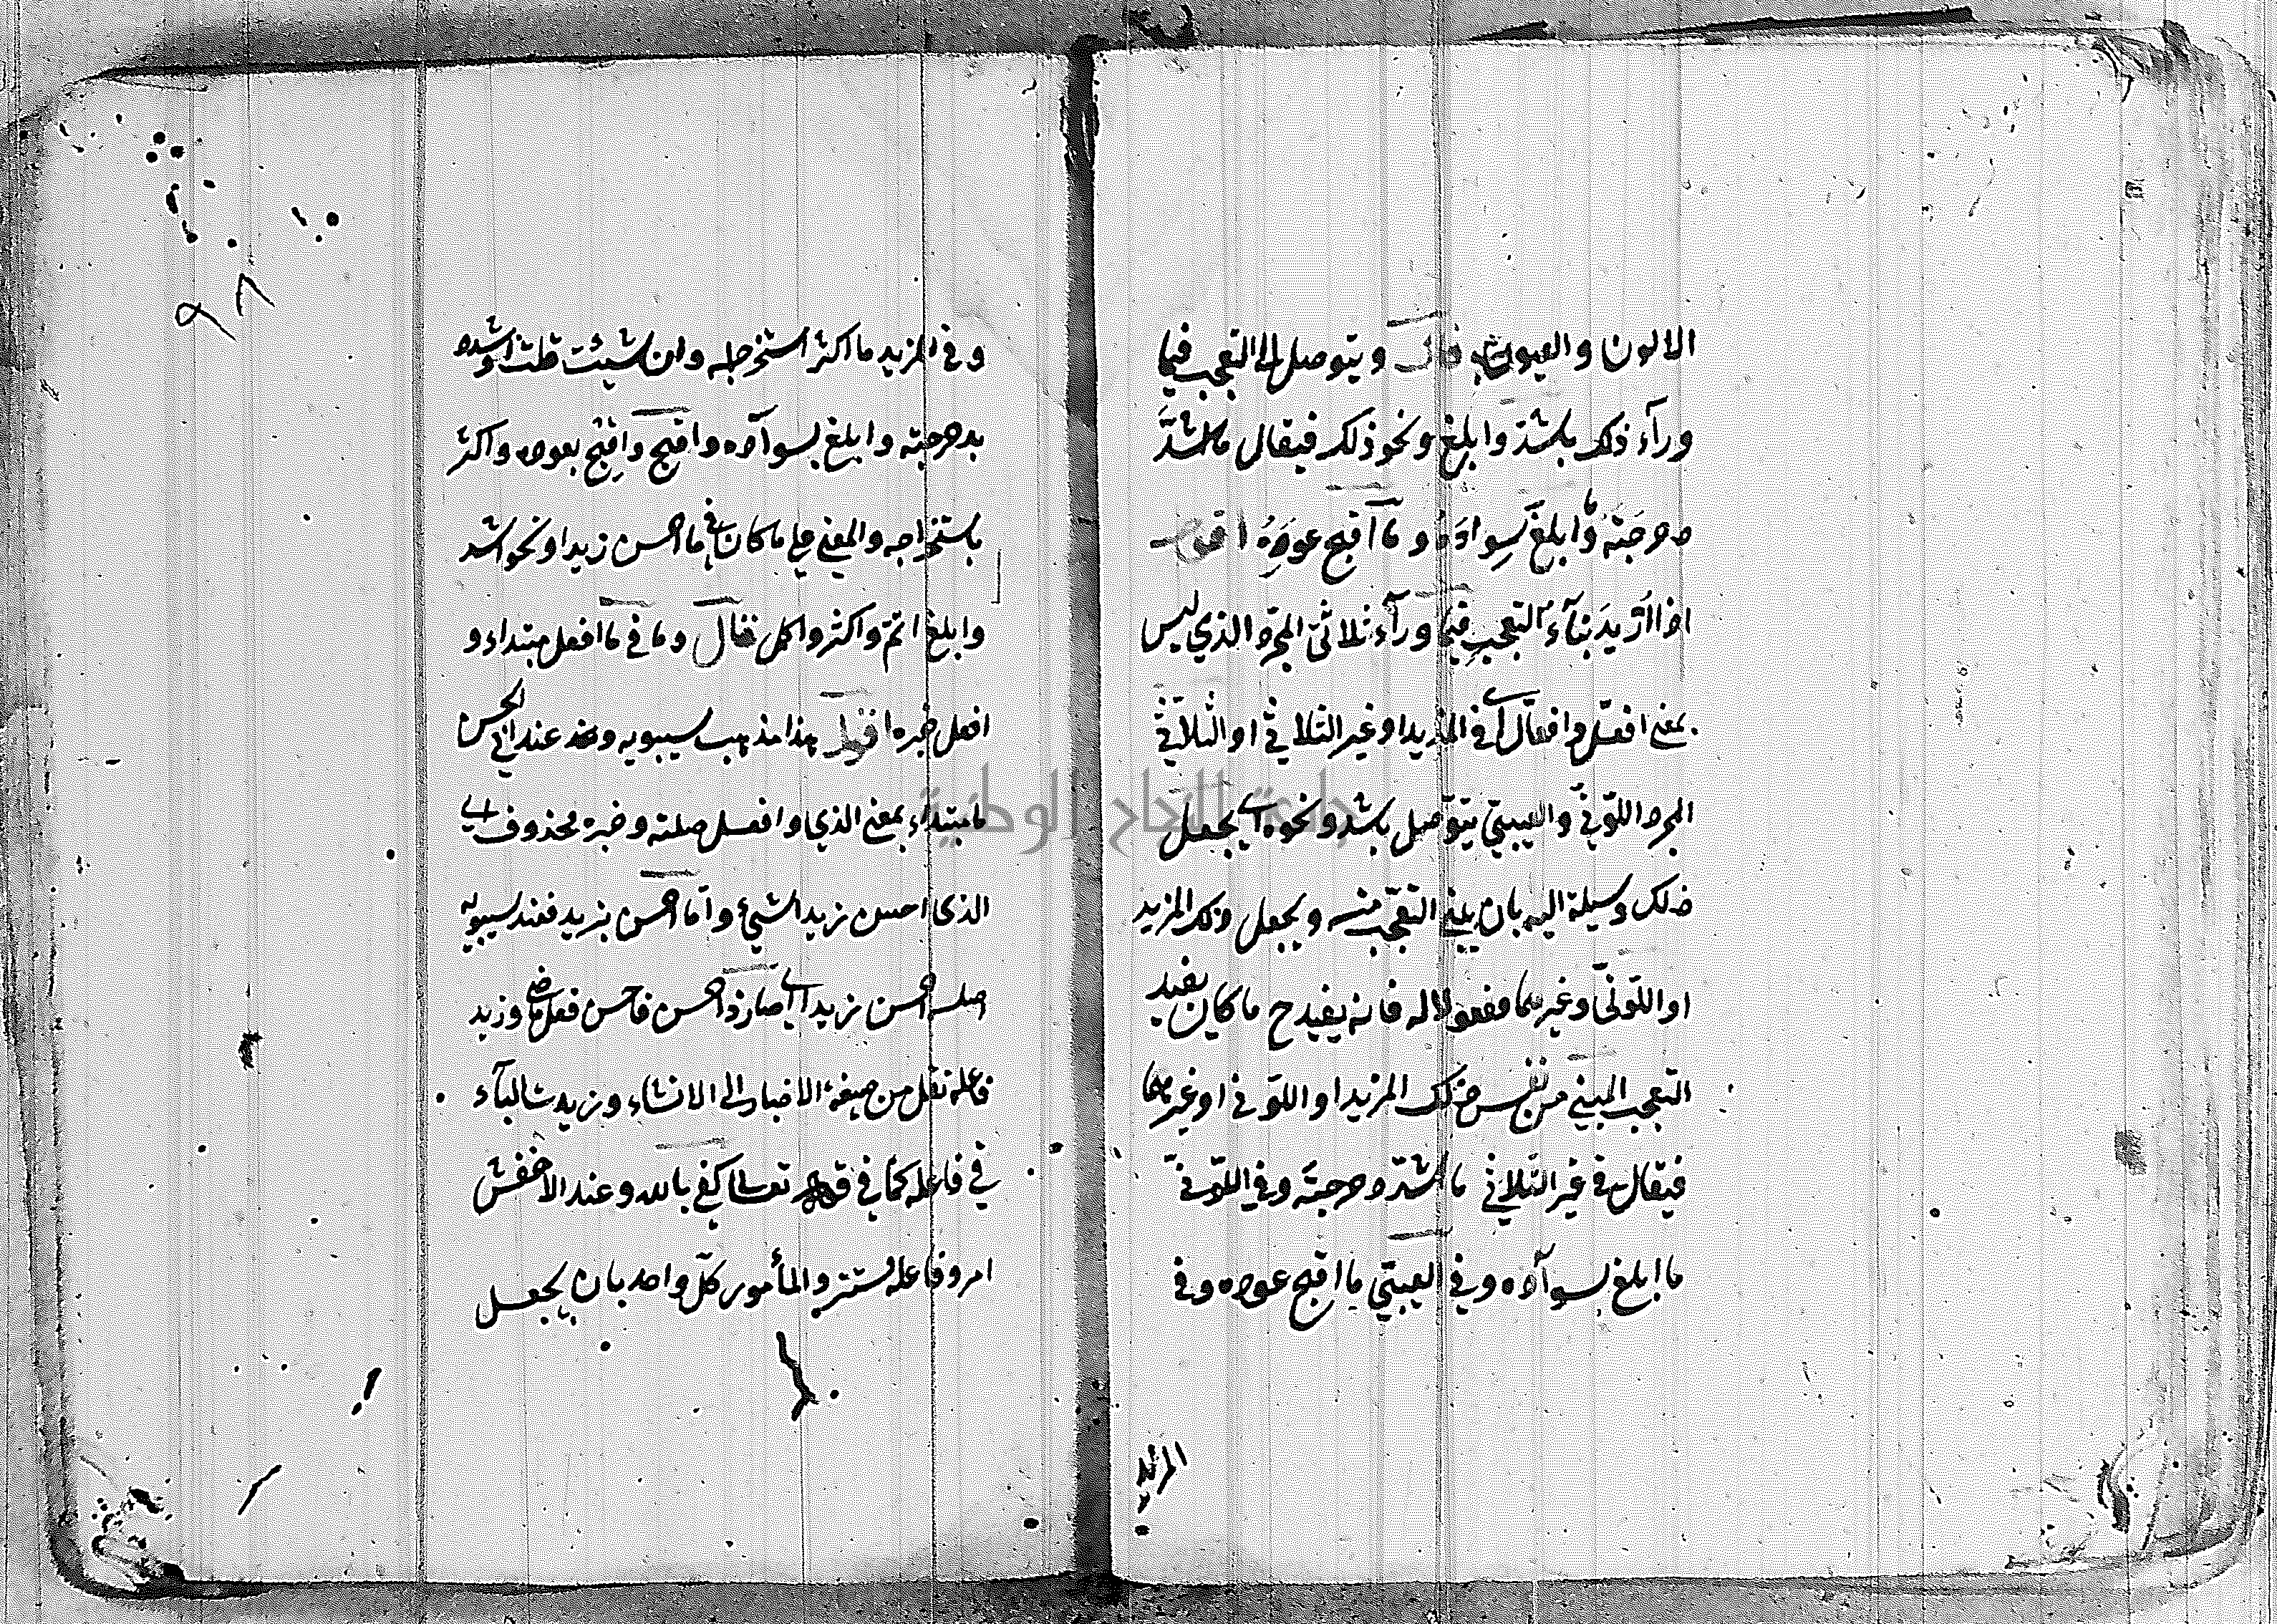 الالون والعيوب قال ويتوصل الى التعجب فيما
ورآء ذلك باشد وابلغ ونحو ذلك فيقال ما اشدَّ
دحرجَتهُ وما ابلغَ سوادَهُ وما آقبح عوَرَهُ اقول
اذا اُرْيدَ بنآءُ التعجبِ فيما ورآء ثلاثىّ المجرّد الذي ليس
بمعنى افعلّ وافعالّ اى في المزيد او غير الثلاثي او الثلاثي
المجرد اللّوني والعيبيّ يتوّصل باشد ونحوه اى يجعل
ذلك وسيلة اليه بان يبنى التعّجب منه ويجعل ذلك المزيد
او اللّونيّ وغيرهما مفعولا له فانه يفيد ح ما كان يفيد
التعجب المبني من نفس ذلك المزيد او اللّوني او غيرهما
فيقال في غير الثلاثي ما اشدّ دحرجته وفي اللّوني
ما ابلغ سوآده وفي العيبيّ ما اقبح عوره وفي
المزيد
٩٨
وفي المزيد ما اكثر استخراجه وان شيئت قلت اشدد
بدحرجته وابلغ بسوآده واقبح بعوره واكثر
باستخراجه والمعنى على ما كان في ما احسن زيدا ونحو اشد
وابلغ اتمّ واكثر واكمل قال وما في ما افعل مبتداء و
افعل خبره اقول هذا مذهب سيبويه وعند ابي الحسن
ما مبتداء بمعنى الذي وافعل صلته وخبره محذوف اى
الذى احسن زيدا شيئ وامّا احسن بزيد فعند سيبويه
اصله احسن زيد اى صار ذا حسن فاحسن فعل ماض وزيد
فاعله نقل من صيغة الاخبار الى الانشاء وزيدت البآء
في فاعله كما في قوله تعالى كفى بالله وعند الاخفش
امر وفاعله مستتر والمأمور كلّ واحد بان يجعل
جامعة النجاح الوطنية